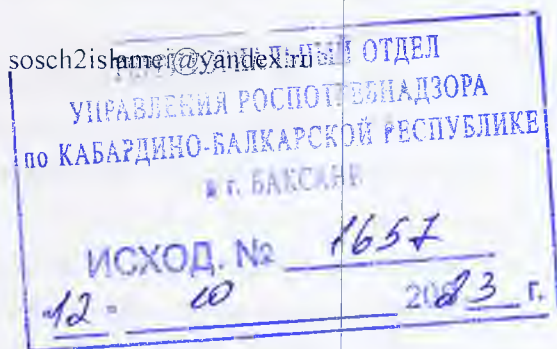 sosch2islamei@yandex.ru
ТЕРРИТОРИАЛЬНЫЙ ОТДЕЛ
УПРАВЛЕНИЯ РОСПОТРЕБНАДЗОРА
по КАБАРДИНО-БАЛКАРСКОЙ РЕСПУБЛИКЕ
в г. БАКСАНЕ
ИСХОД. № 1657
12 - 10 2023 г.